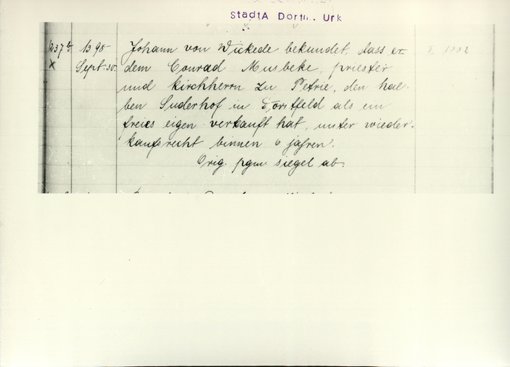 StadtA Dortm. Urk
1395 Johann von Wickede bekundet, dass er
Sept. 30. dem Conrad Musbeke, priester
und kirchherrn zu Petrie, den hal-
ben Suderhof in Dorstfeld als ein
freies eigen verkauft hat, unter wieder-
kaufsrecht binnen 6 jahren.
Orig. pgm siegel ab.